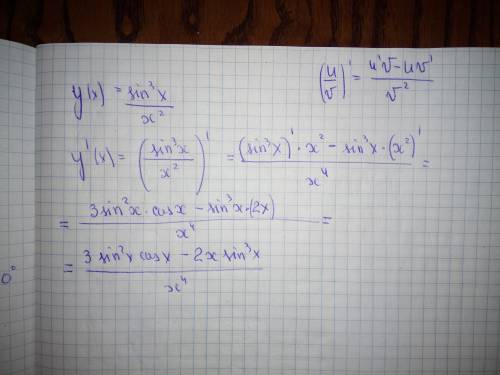 y(x) = sin³x / x²
(u/v)' = (u'v - uv') / v²
y'(x) = (sin³x / x²)' = ((sin³x)' · x² - sin³x · (x²)') / x⁴ =
= (3sin²x · cosx - sin³x · (2x)) / x⁴ =
= (3sin²x cosx - 2x sin³x) / x⁴
0°